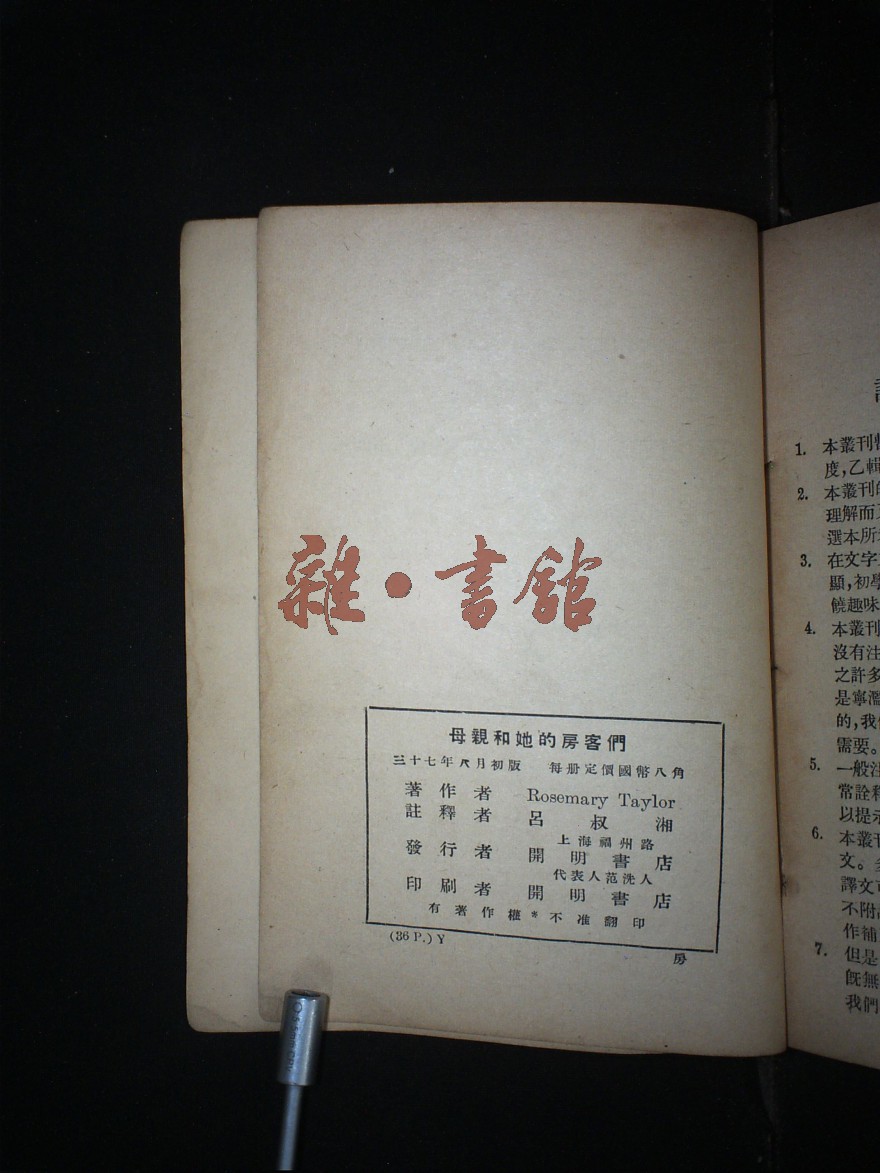 雜·書館
母親和她的房客們
三十七年八月初版 每册定價國幣八角
著作者 Rosemary Taylor
註釋者 呂叔湘
上海福州路
發行者 開明書店
代表人范洗人
印刷者 開明書店
有著作權*不准翻印
(36 P.) Y
房
1. 本叢刊
度,乙輯
2. 本叢刊的
理解而
選本所
3. 在文字
顯,初學
饒趣味
4. 本叢刊
沒有注
之許多
是寧濫
的,我
需要。
5. 一般注
常詮釋
以提示
6. 本叢刊
文。
譯文可
不附
作補
7. 但是
旣無
我們